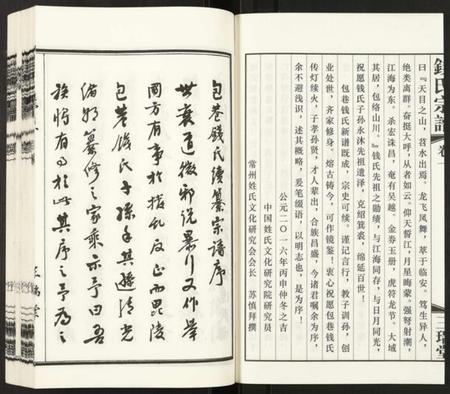 錢氏宗譜
卷一
三瑞堂
曰『天目之山，苕水出焉。龙飞凤舞，萃于临安。笃生异人，
绝类离群。奋挺大呼，从者如云。仰天誓江，月星晦蒙。强弩射潮，
江海为东。杀宏诛昌，奄有吴越。金券玉册，虎符龙节。大城
其居，包络山川。』钱氏先祖之勋绩，与江海同存，与日月同光，
祝愿钱氏子孙永沐先祖遗泽，克绍箕裘，绵延百世！
包巷钱氏新谱既成，宗史可续。谨记言行，教子训孙，创
业处世，齐家修身，熔古铸今，可作镜鉴。衷心祝愿包巷钱氏
传灯续火，子孝孙贤，才人辈出，合族昌盛，今诸君嘱余为序，
余不避浅识，述其概略，爰笔缀语，以明志也，是为序！
公元二〇一六年丙申仲冬之吉
中国姓氏文化研究院研究员
常州姓氏文化研究会会长 苏慎拜撰
包巷錢氏續纂宗譜序
世衰道微邪说暴行又作举
國方有事於拨乱反正而毗陵
包巷錢氏子孫手其
纂修之家乘示予曰吾
族将有事於此其序之予為之